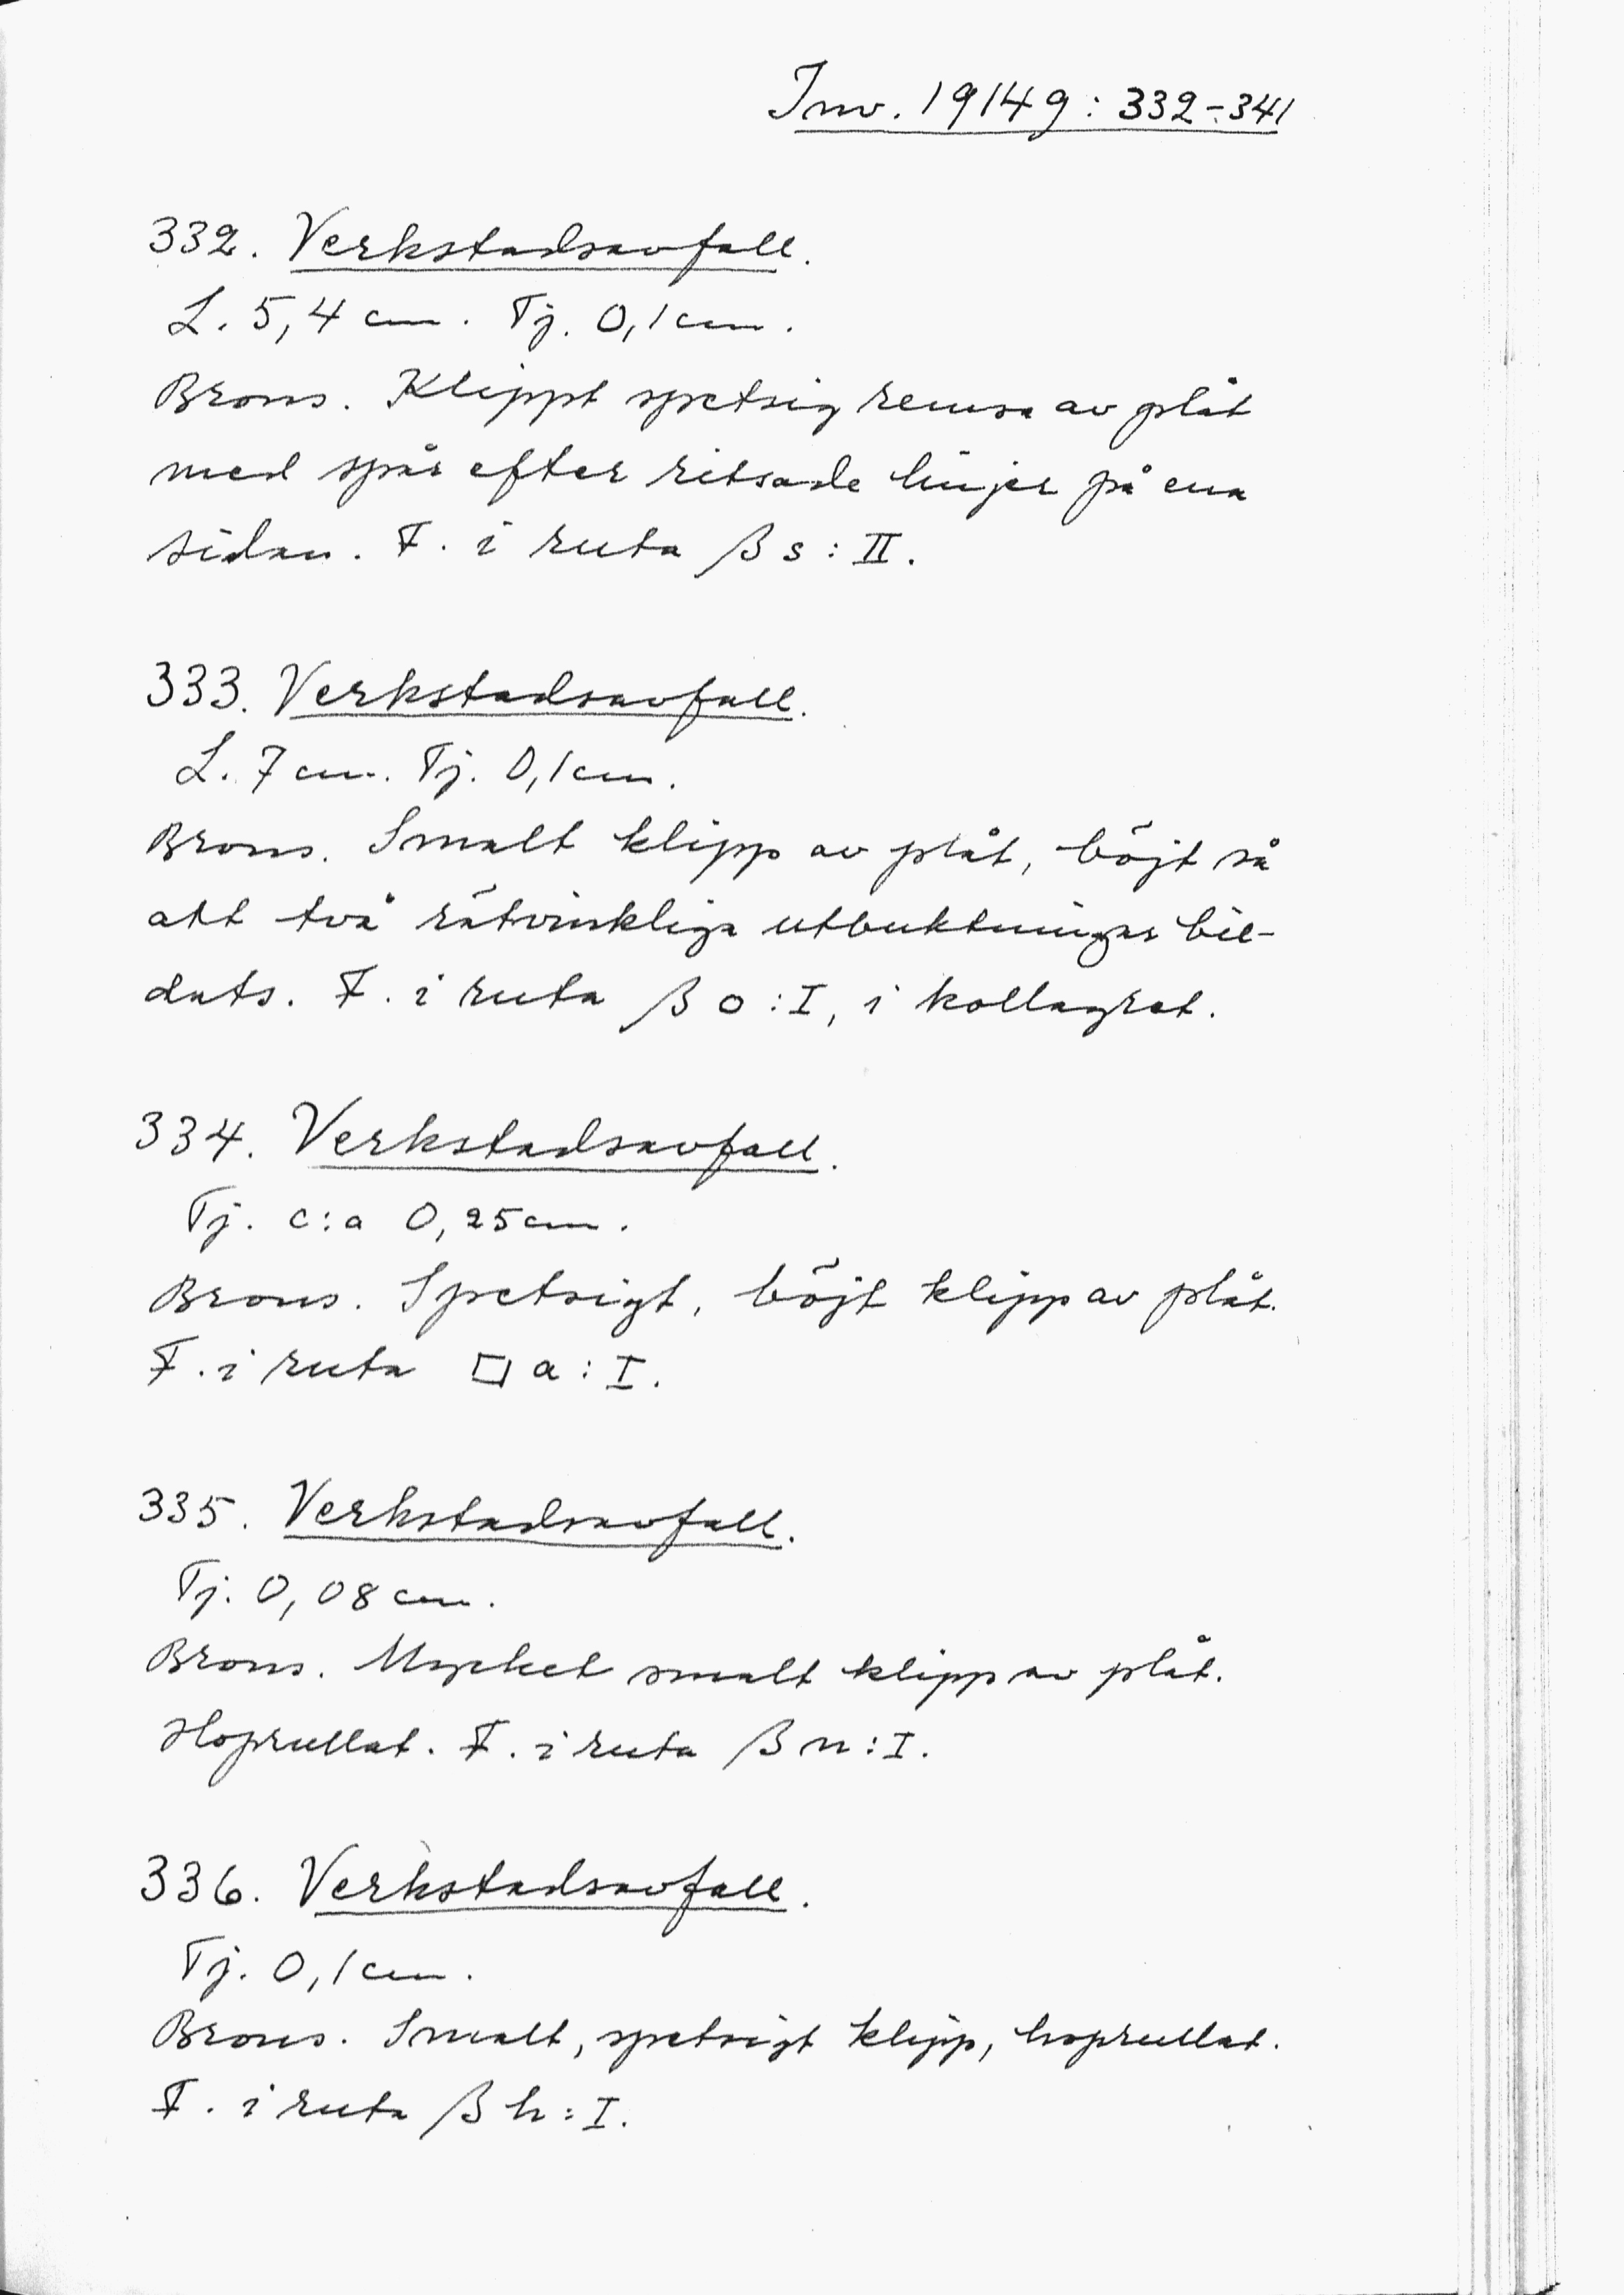 Inv. 19149: 332-341
332. Verkstadsavfall.
L. 5,4 cm. Tj. 0,1 cm.
Brons. Klippt spetsig remsa av plåt
med spår efter ritsade linjer på ena
sidan. F. i ruta β s: II.
333. Verkstadsavfall.
L. 7 cm. Tj. 0,1 cm.
Brons. Smalt klipp av plåt, böjt så
att två rätvinkliga utbuktningar bil-
dats. F. i ruta β o: I, i kollagret.
334. Verkstadsavfall.
Tj. c:a 0,25 cm.
Brons. Spetsigt, böjt klipp av plåt.
F. i ruta □ a: I.
335. Verkstadsavfall.
Tj. 0,08 cm.
Brons. Mycket smalt klipp av plåt.
Hoprullat. F. i ruta β n: I.
336. Verkstadsavfall.
Tj. 0,1 cm.
Brons. Smalt, spetsigt klipp, hoprullat.
F. i ruta β h: I.